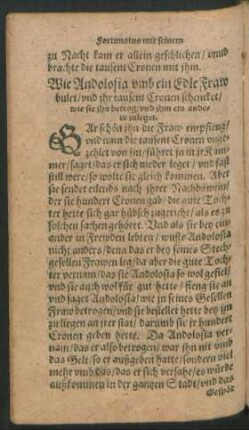 Fortunatus mit seinem
zu Nacht kam er allein geschlichen / vnnd
brachte die tausent Cronen mit jhm.
Wie Andolosia vmb ein Edle Fraw
bulet / vnd jhr tausent Cronen schencket /
wie sie jhn betrog / vnd jhm ein andere
zuleget.
Gar schön jhn die Fraw empfieng /
vnd nam die tausent Cronen vnge-
zehlet von jm / führet jn in jr Kam-
mer / saget / das er sich nider leget / vnd fast
still were / so wolte sie gleich kommen. Aber
sie sendet eilends nach jhrer Nachbäwrin /
der sie hundert Cronen gab / die gute Toch-
ter hette sich gar hübsch zugericht / als es zu
solchen sachen gehöret. Vnd als sie bey ein-
ander in Frewden lebten / wuste Andolosia
nicht anders / denn das er bey seines Stech-
gesellen Frawen leg / da aber die gute Toch-
ter vernam / das sie Andolosia so wol gefiel /
vnd sie auch wol für gut hette / fieng sie an
vnd saget Andolosia / wie jn seines Gesellen
Fraw betrogen / vnd sie bestellet hette bey jm
zu liegen an jrer stat / darumb sie jr hundert
Cronen geben hette. Da Andolosia ver-
nam / das er also betrogen / war jhn nit vmb
das Gelt / so er außgeben hatte / sondern viel
mehr vmb das / das er sich versahe / es würde
außkommen in der gantzen Stadt / vnd das
Gespöt